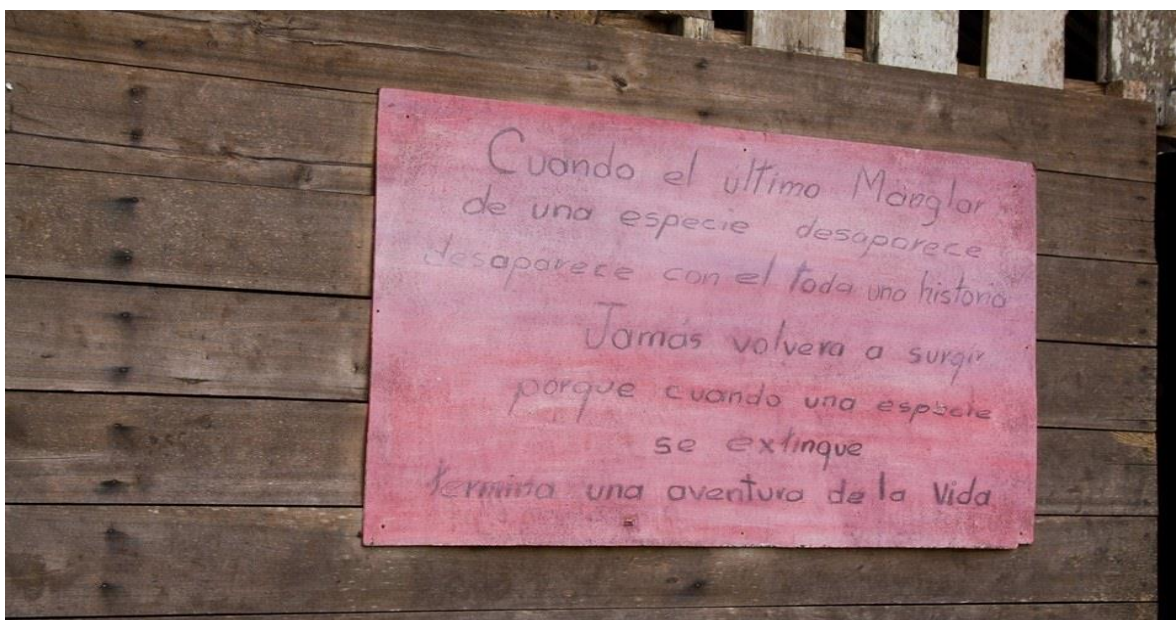 Cuando el ultimo Manglar
de una especie desaparece
desaparece con el toda una historia
Jamás volvera a surgir
porque cuando una especie
se extinque
termina una aventura de la Vida